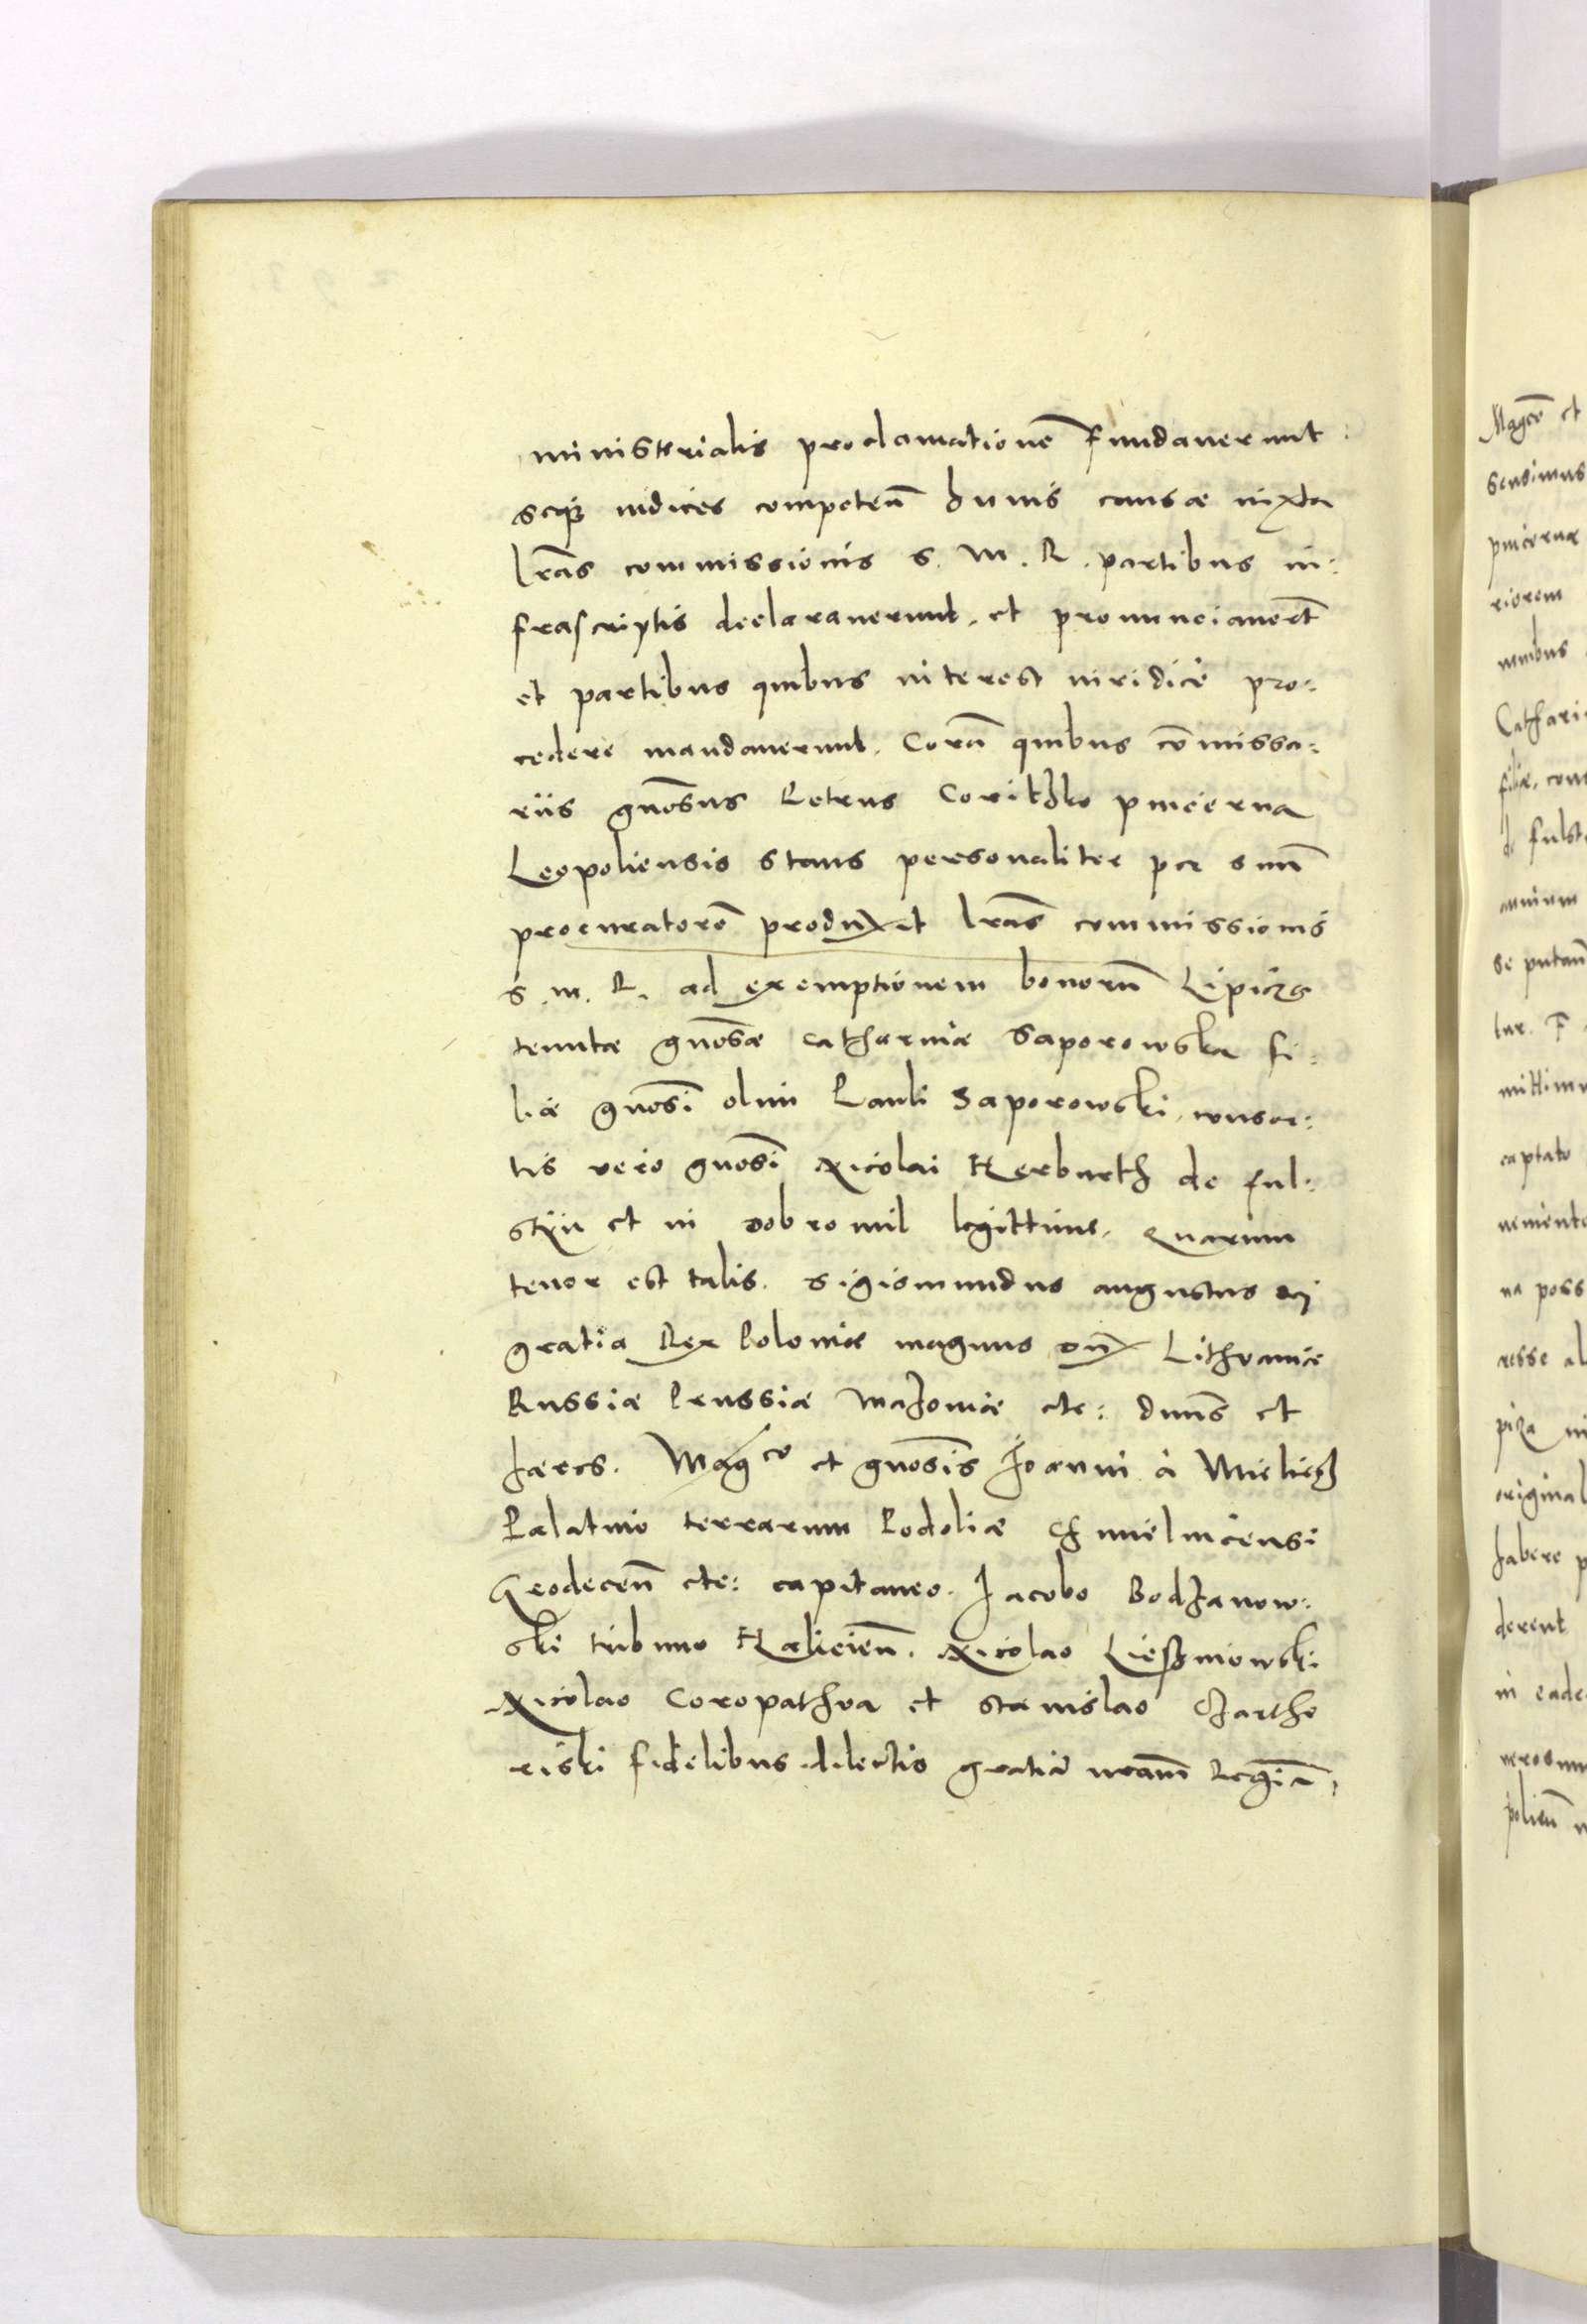 ministerialis proclamatione Fundaverunt
seqꝫ iudices competen̄ huius causæ iuxta
lras commissionis s. M. R. partibus in:
frascriptis declaraverunt. et pronunciaver̄t
et partibus quibus interest iuridice pro:
cedere mandaverunt. Corā quibus cōmissa:
riis gnosus Petrus Coritzko pincerna
Leopoliensis stans personaliter per suū
procuratorē produxit lras commissionis
s. m. R. ad exemptionem bonorū Lipicza
tenutæ gnosæ Catharinæ Saporowska fi:
liæ gnosi olim Pauli Saporowski, consor:
tis vero gnosi Nicolai Herburth de Ful:
styn et in Dobromil legittime. Quarum
tenor est talis. Sigismundus augustus Dei
gratia Rex Poloniæ magnus Dux Lithvaniæ
Russiæ Prussiæ Mazoviæ etc: dn̄s et
hæres. Magco et gnosis Joanni à Mielicz
Palatino terrarum Podoliæ Chmielnicensi
Grodecen̄ etc: capitaneo. Jacobo Bodzanow:
ski tribuno Halicien̄. Nicolao Lieszniowski
Nicolao Coropathva et Stanislao Chartho
riski fidelibus dilectis gratiā nr̄am Regiā,

Magco et
sensimus
pincernæ
riorem
nuibus
Cathari
filiæ, con
d Fulst
annum
se putan̄
tur. F
mittimu
captato
nemento
na poss
resse al
piza in
original
habere p
derent
in eade
nerosum
polien̄